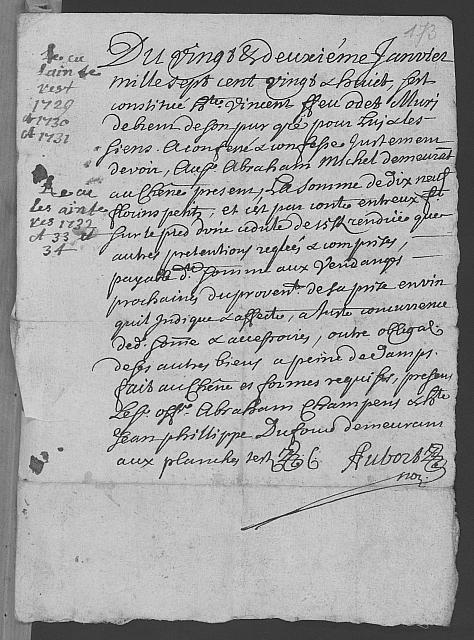 173
Recu
lainte
rest
1729
et 1730
et 1731
Recu
les ainte
res 1732
et 33 et
34
Du vingt & deuxiéme Janvier
mille sept cent vingt & huict, sest
constitué hte. Vincent ffeu odet Muri
de bex de son pur gré pour luy & les
siens. A confessé & confesse Justement
devoir, Abraham Michel demeurat
au Chêne present, La somme de dix neuf
florins petit, et c'est par conte entreux
sur le pied d'une cedule de rendüe quer
autres pretentions reglés & comprises,
payable de. somme aux Vendanges
prochaines du provent. de sa prise en vin
quil Indique & affecte, a Juste concurrence
de d. somme & accessoires, outre obligat.
de ses autres biens a peine de damps.
fait au Chêne es formes requises, presens
Abraham Champens & hte
Jean phillippe Dufour demeurans
aux planches test. 6 Aubort
not.